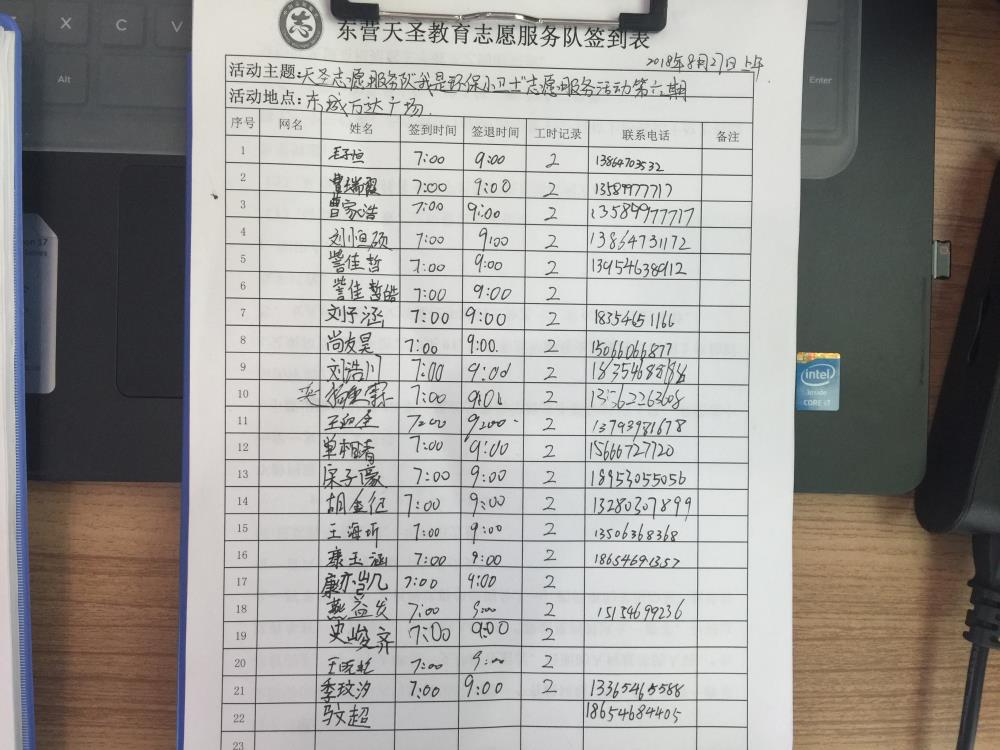 X
C
V
Alt
Enter
东营天圣教育志愿服务队签到表
2018年8月27日上午
活动主题: 天圣志愿服务队"我是环保小卫士"志愿服务活动第六期
活动地点: 东城万达广场.
序号 网名 姓名 签到时间 签退时间 工时记录 联系电话 备注
1 毛子恒 7:00 9:00 2 13864703532
2 曹瑞霞 7:00 9:00 2 13589977717
3 曹家浩 7:00 9:00 2 13589977717
4 刘恒硕 7:00 9:00 2 13864731172
5 訾佳哲 7:00 9:00 2 13954638912
6 訾佳皓 7:00 9:00 2
7 刘子涵 7:00 9:00 2 18354651166
8 尚友昊 7:00 9:00. 2 15066066877
9 刘浩川 7:00 9:00 2
10 7:00 9:00 2
11 7:00 9:00 2 13793981678
12 单相睿 7:00 9:00 2 15666727720
13 宋子豪 7:00 9:00 2 18953055056
14 胡金征 7:00 9:00 2 13280307899
15 王海昕 7:00 9:00 2 13506368368
16 康玉涵 7:00 9:00 2 18654691357
17 康亦凯 7:00 9:00 2
18 燕益发 7:00 9:00 2 15154699236
19 史峻齐 7:00 9:00 2
20 7:00 9:00 2
21 季玟汐 7:00 9:00 2 13365465588
22 超 18654684405
23
intel
inside
CORE i7